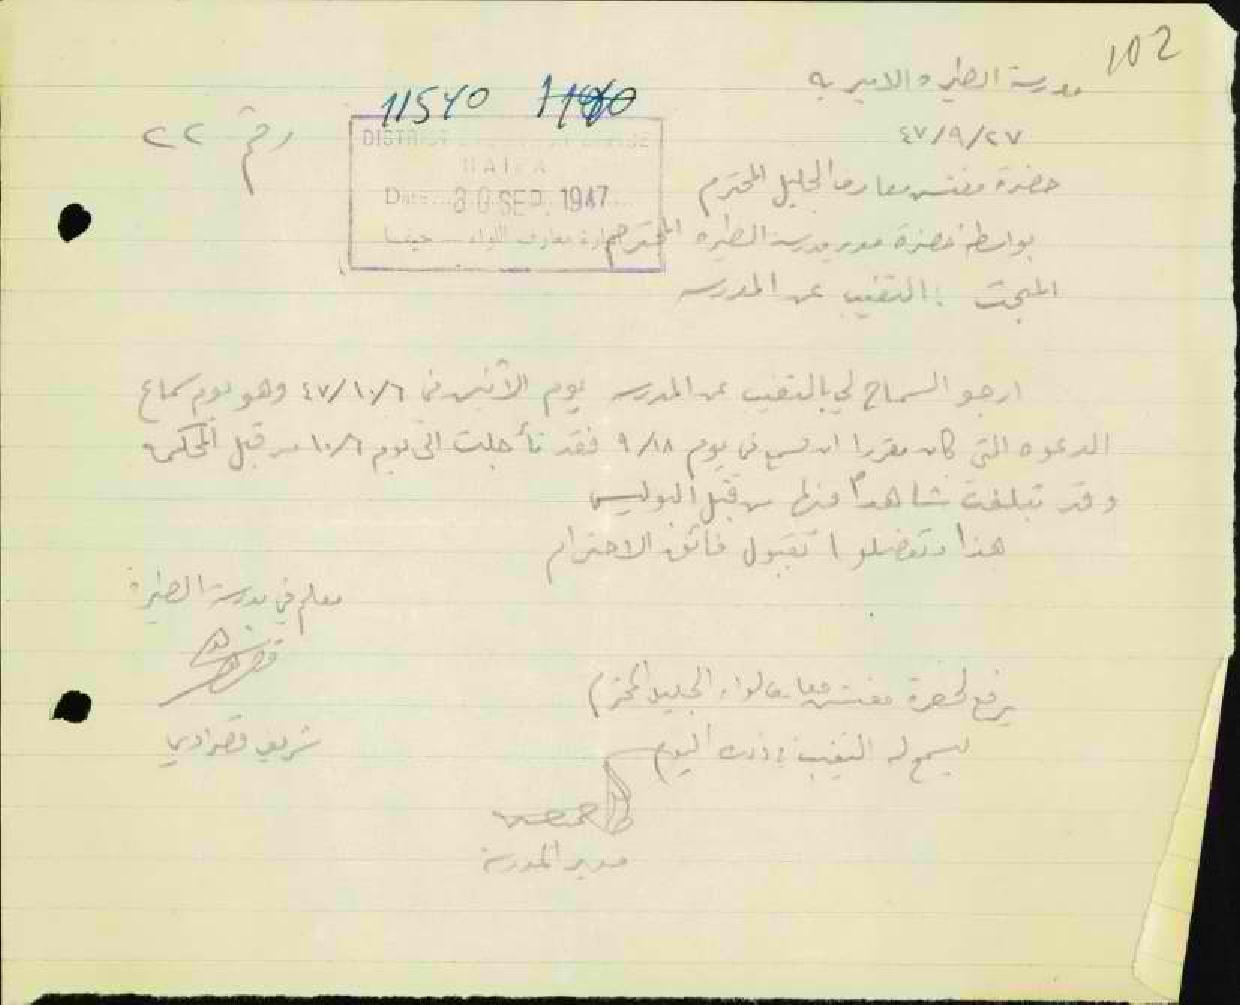 102
مدرسة الطيره الاميريه
11540 1180
رقم ٢٢
٤٧/٩/٢٧
DISTRICT OFFICE
HAIFA
Date 30 SEP. 1947
ادارة معارف اللواء - حيفا
حضرة مفتش معارف الجليل المحترم
بواسطة حضرة مدير مدرسة الطيره المحترم
المبحث : التغيب عن المدرسه
ارجو السماح لي بالتغيب عن المدرسه يوم الاثنين في ٤٧/١٠/٦ وهو يوم سماع
الدعوه التي كان مقررا ان تسمع في يوم ٩/١٨ فقد تأجلت الى يوم ١٠/٦ من قبل المحكمه
وقد تبلغت شاهداً فيها من قبل البوليس
هذا وتفضلوا بقبول فائق الاحترام
معلم في مدرسة الطيرة
شريف
يرفع لحضرة مفتش معارف لواء الجليل المحترم
ليسمح له التغيب في ذلك اليوم
مدير المدرسة